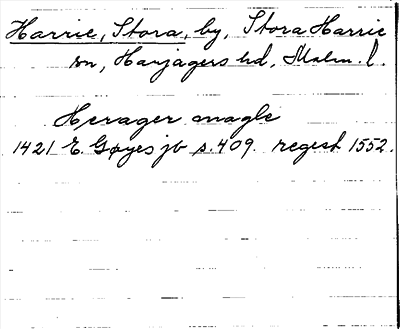 Harrie, Stora, by, Stora Harrie
sn, Harjagers hd, Malm. l.
Herager magle
1421 E. Gøyes jb s. 409. regest 1552.